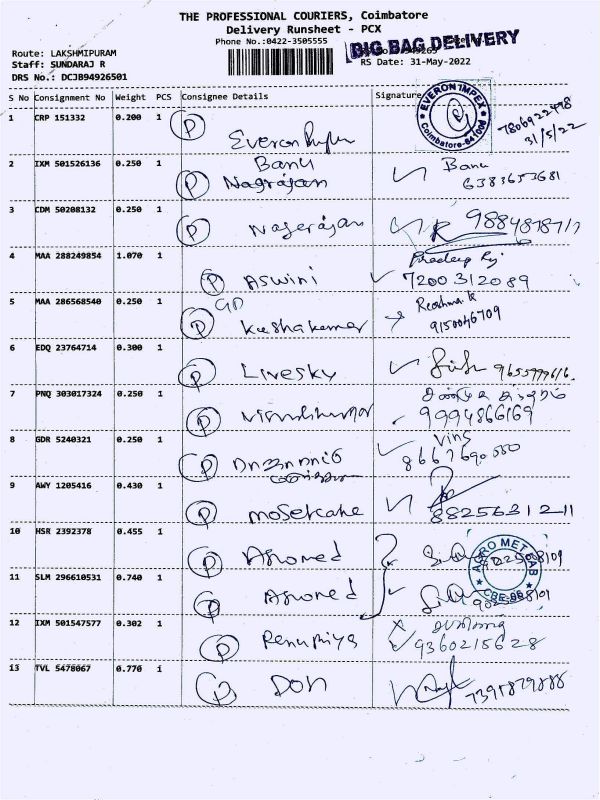 THE PROFESSIONAL COURIERS, Coimbatore
Delivery Runsheet - PCX
Phone No.:0422-3505555
BIG BAG DELIVERY
Route: LAKSHMIPURAM
Staff: SUNDARAJ R
RS Date: 31-May-2022
DRS No.: DCJB94926501
S No Consignment No Weight PCS Consignee Details Signature
EVERON IMPEX
Coimbatore-641006
1 CRP 151332 0.200 1 P Everon 7806922498
31/5/22
2 IXM 501526136 0.250 1 P Banu Nagrajan Banu
6383653681
3 CDM 50208132 0.250 1 P Nagerajan
4 MAA 288249854 1.070 1 P Aswini Pradeep
7200312089
5 MAA 286568540 0.250 1 P GD Kushakumar Reshma K
9150046709
6 EDQ 23764714 0.300 1 P Livesky
7 PNQ 303017324 0.250 1 P
9994866169
8 GDR 5240321 0.250 1 P
9 AWY 1205416 0.430 1 P mosercare
8825631211
10 HSR 2392378 0.455 1 P
AGRO MET LAB
11 SLM 296610531 0.740 1 P
12 IXM 501547577 0.302 1 P Renupriya
9360215628
13 TVL 5476067 0.770 1 P DON
7395879888